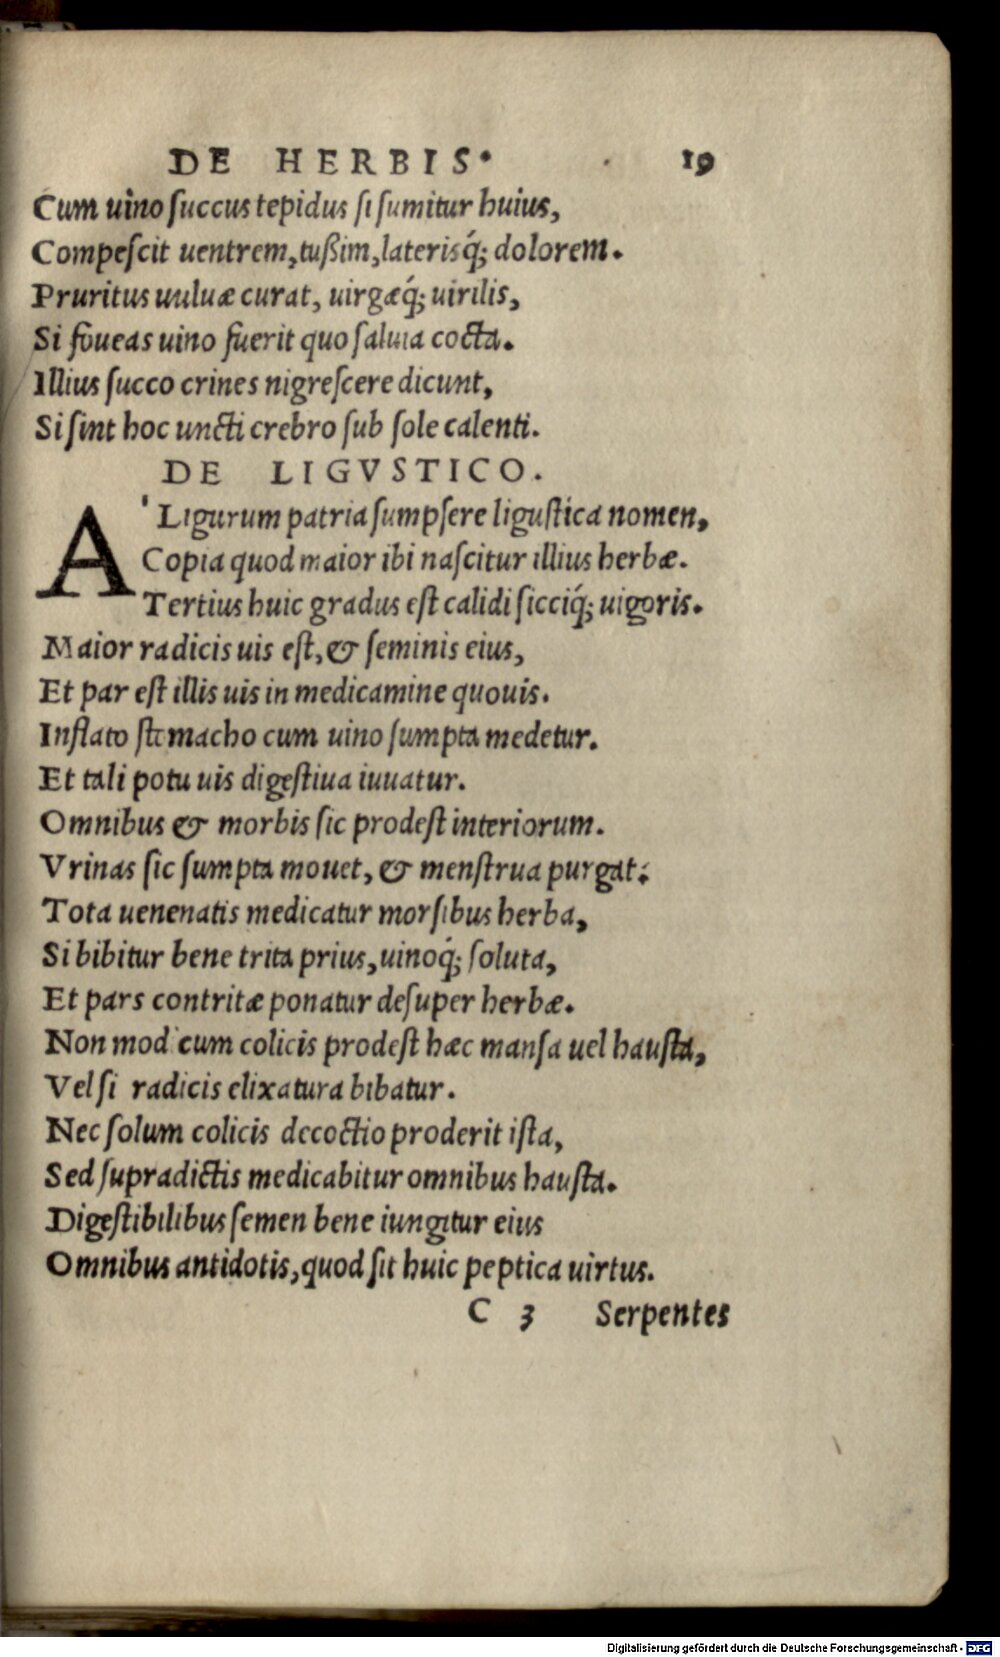 DE HERBIS. 19
Cum uino ſuccus tepidus ſi ſumitur huius,
Compeſcit uentrem, tußim, lateriſq́; dolorem.
Pruritus uuluæ curat, uirgæq́; uirilis,
Si foueas uino fuerit quo ſaluia cocta.
Illius ſucco crines nigreſcere dicunt,
Si ſint hoc uncti crebro ſub ſole calenti.
DE LIGVSTICO.
A' Ligurum patria ſumpſere liguſtica nomen,
Copia quod maior ibi naſcitur illius herbæ.
Tertius huic gradus eſt calidi ſicciq́; uigoris.
Maior radicis uis eſt, & ſeminis eius,
Et par eſt illis uis in medicamine quouis.
Inflato ſtomacho cum uino ſumpta medetur.
Et tali potu uis digeſtiua iuuatur.
Omnibus & morbis ſic prodeſt interiorum.
Vrinas ſic ſumpta mouet, & menſtrua purgat:
Tota uenenatis medicatur morſibus herba,
Si bibitur bene trita prius, uinoq́; ſoluta,
Et pars contritæ ponatur deſuper herbæ.
Non mod cum colicis prodeſt hæc manſa uel hauſta,
Vel ſi radicis elixatura bibatur.
Nec ſolum colicis decoctio proderit iſta,
Sed ſupradictis medicabitur omnibus hauſta.
Digeſtibilibus ſemen bene iungitur eius
Omnibus antidotis, quod ſit huic peptica uirtus.
C 3 Serpentes
Digitalisierung gefördert durch die Deutsche Forschungsgemeinschaft - DFG